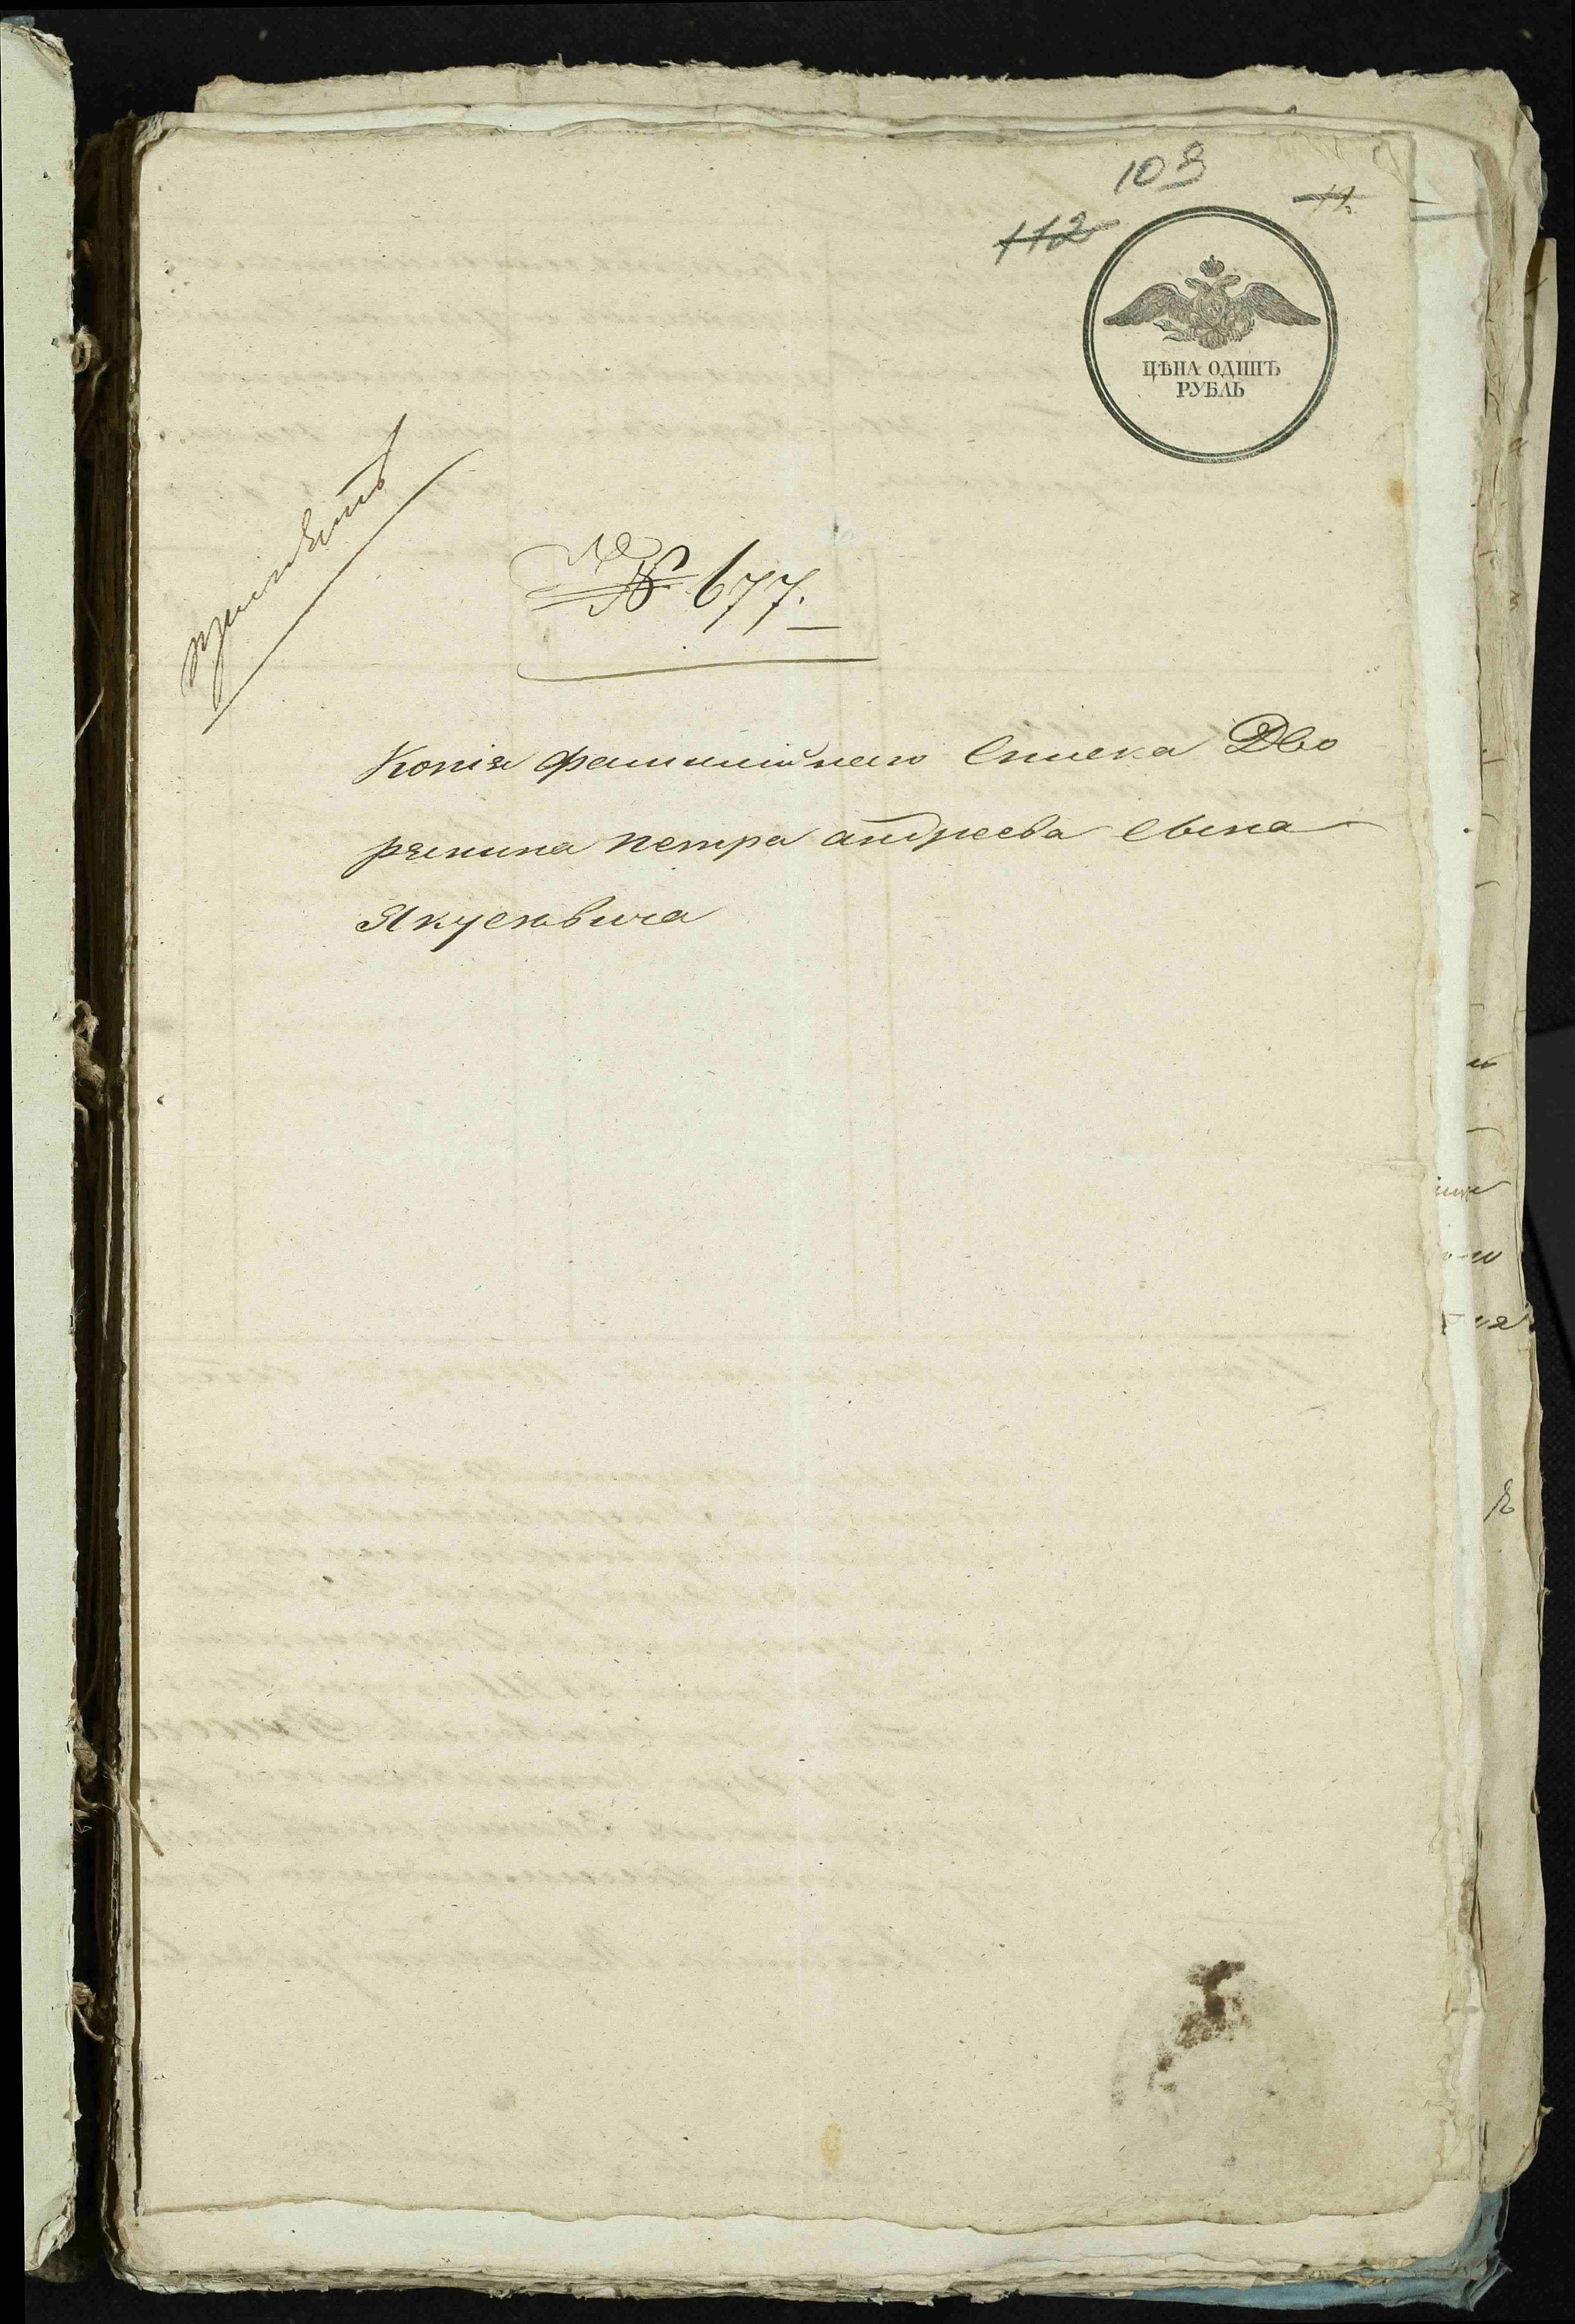 103
112
ЦѢНА ОДИНЪ
РУБЛЬ
№ 677.
Копія фамилійнаго Списка Дво
рянина петра андреева Сына
Якусевича